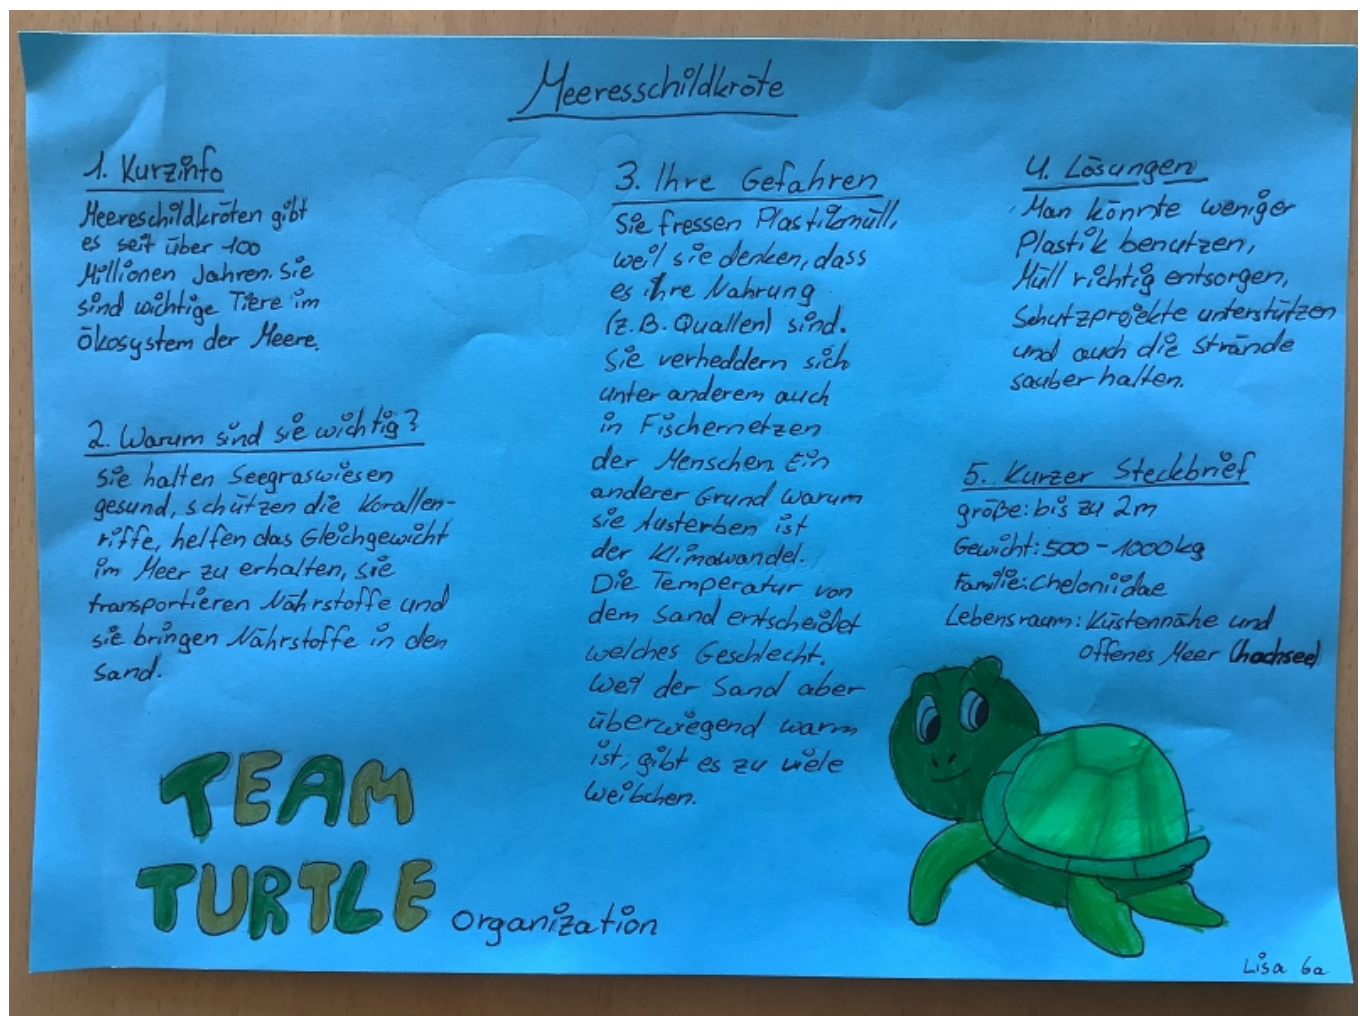 Meeresschildkröte
1. Kurzinfo
Meereschildkröten gibt
es seit über 100
Millionen Jahren. Sie
sind wichtige Tiere im
Ökosystem der Meere.
2. Warum sind sie wichtig?
Sie halten Seegraswiesen
gesund, schützen die Korallen-
riffe, helfen das Gleichgewicht
im Meer zu erhalten, sie
transportieren Nährstoffe und
sie bringen Nährstoffe in den
Sand.
TEAM
TURTLE Organization
3. Ihre Gefahren
Sie fressen Plastikmüll,
weil sie denken, dass
es ihre Nahrung
(z.B. Quallen) sind.
Sie verheddern sich
unter anderem auch
in Fischernetzen
der Menschen. Ein
anderer Grund warum
sie Austerben ist
der Klimawandel.
Die Temperatur von
dem Sand entscheidet
welches Geschlecht.
Weil der Sand aber
überwiegend warm
ist, gibt es zu viele
Weibchen.
4. Lösungen
Man könnte weniger
Plastik benutzen,
Müll richtig entsorgen,
Schutzprojekte unterstützen
und auch die Strände
sauber halten.
5. Kurzer Steckbrief
größe: bis zu 2m
Gewicht: 500-1000kg
Familie: Cheloniidae
Lebensraum: Küstennähe und
offenes Meer (hochsee)
Lisa 6a